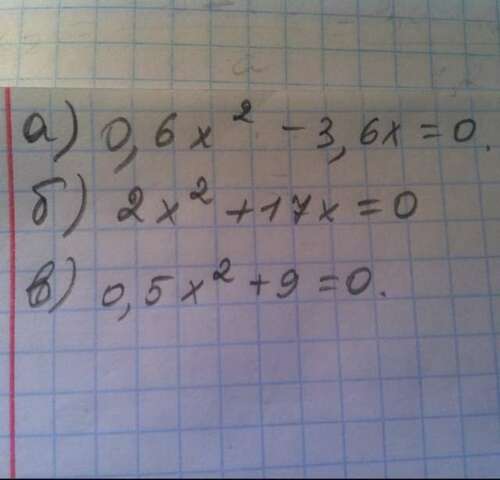 а) 0,6x² - 3,6x = 0.
б) 2x² + 17x = 0
в) 0,5x² + 9 = 0.